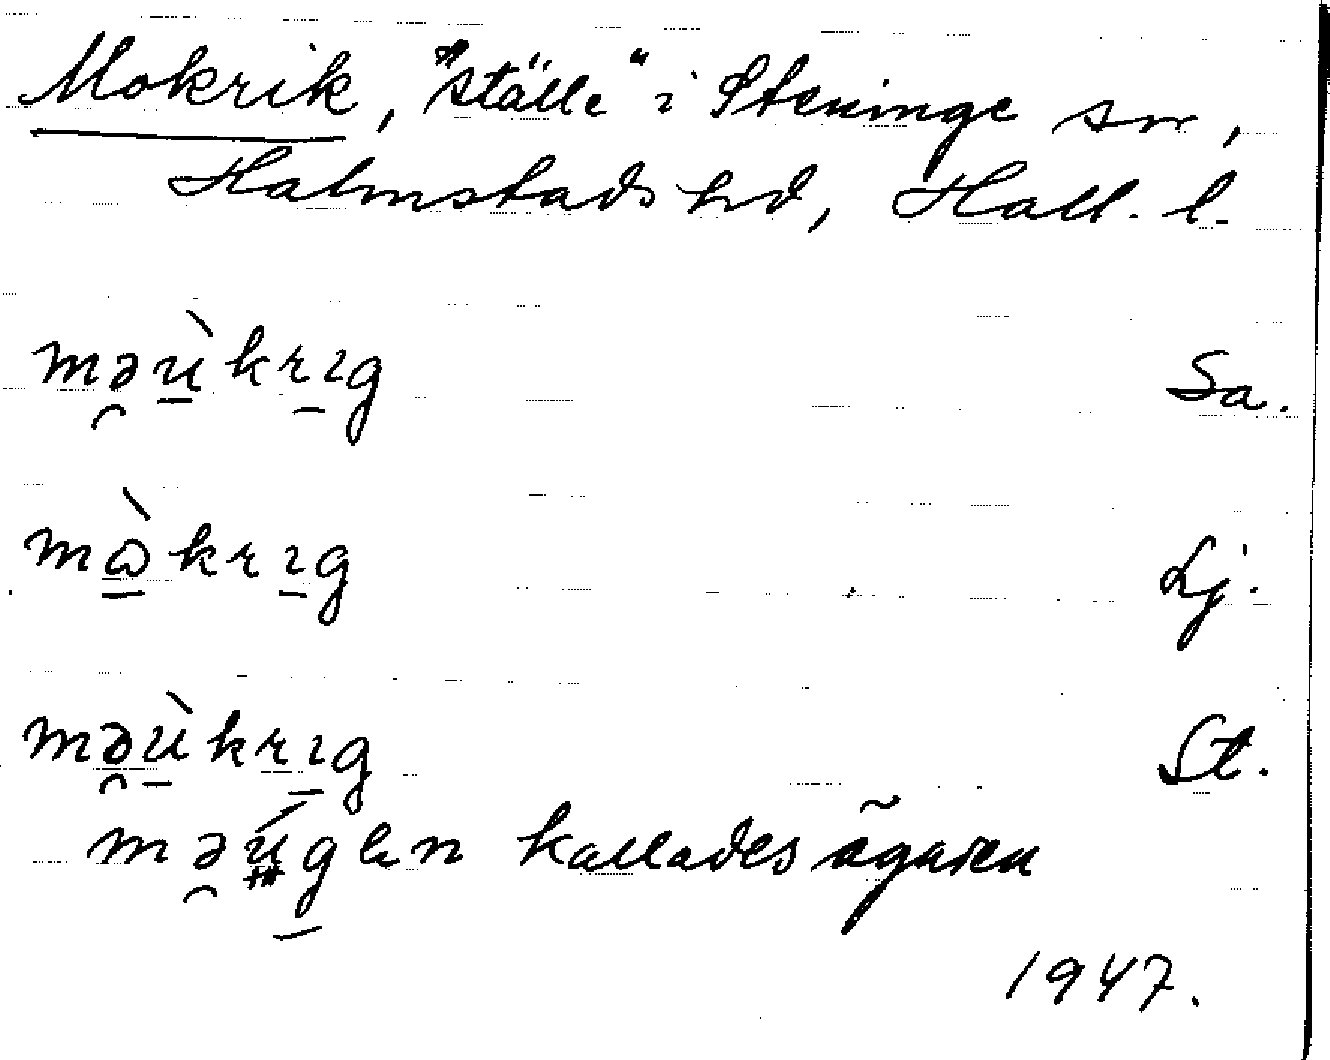 Mokrik, "ställe" i Steninge sn,
Halmstads hd, Hall. l.
mə̯ù̱krıg Sa.
mὼ̱krıg Lj.
mə̯ù̱krıg St.
mə̯úgen kallades ägaren
1947.